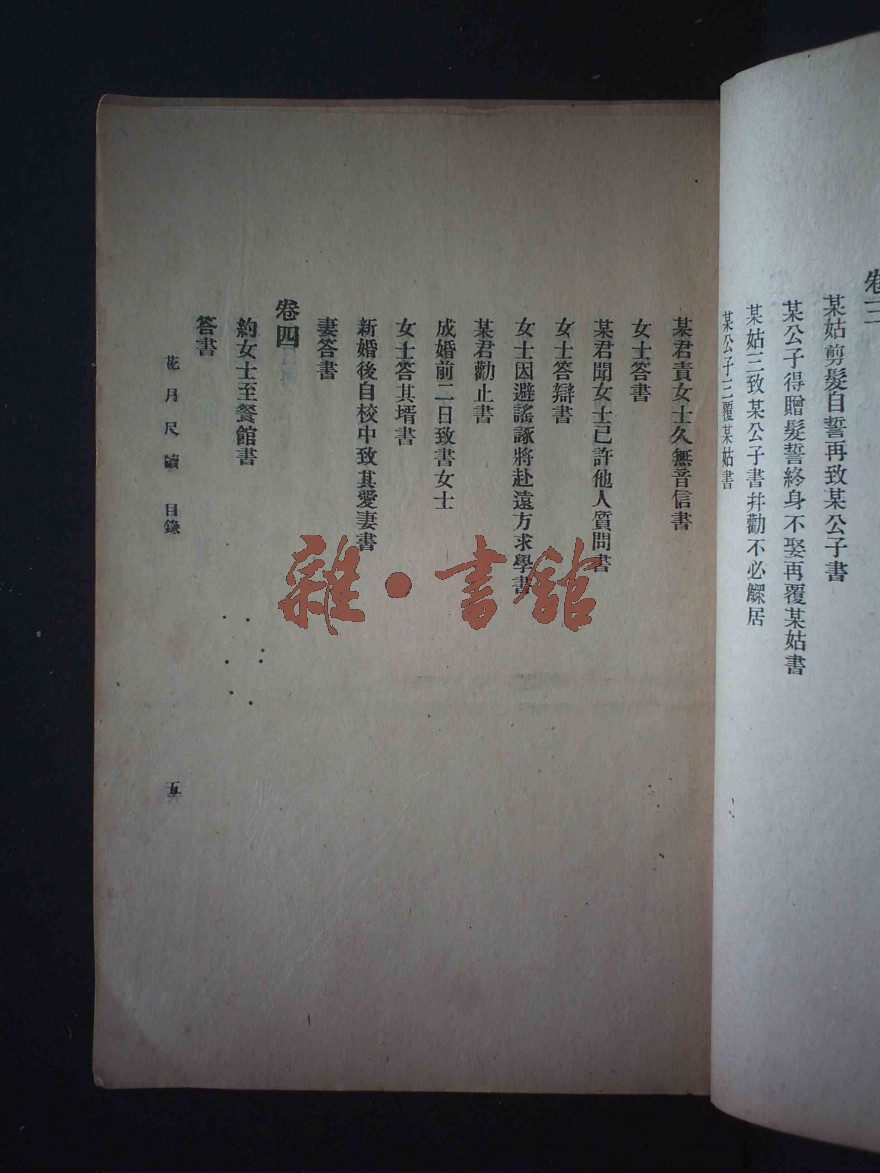 某姑剪髮自誓再致某公子書
某公子得贈髮誓終身不娶再覆某姑書
某姑三致某公子書幷勸不必鰥居
某公子三覆某姑書
某君責女士久無音信書
女士答書
某君聞女士已許他人質問書
女士答辯書
女士因避謠諑將赴遠方求學書
某君勸止書
成婚前二日致書女士
女士答其壻書
新婚後自校中致其愛妻書
妻答書
卷四
約女士至餐館書
答書
花月尺牘 目錄
五
雜·書館